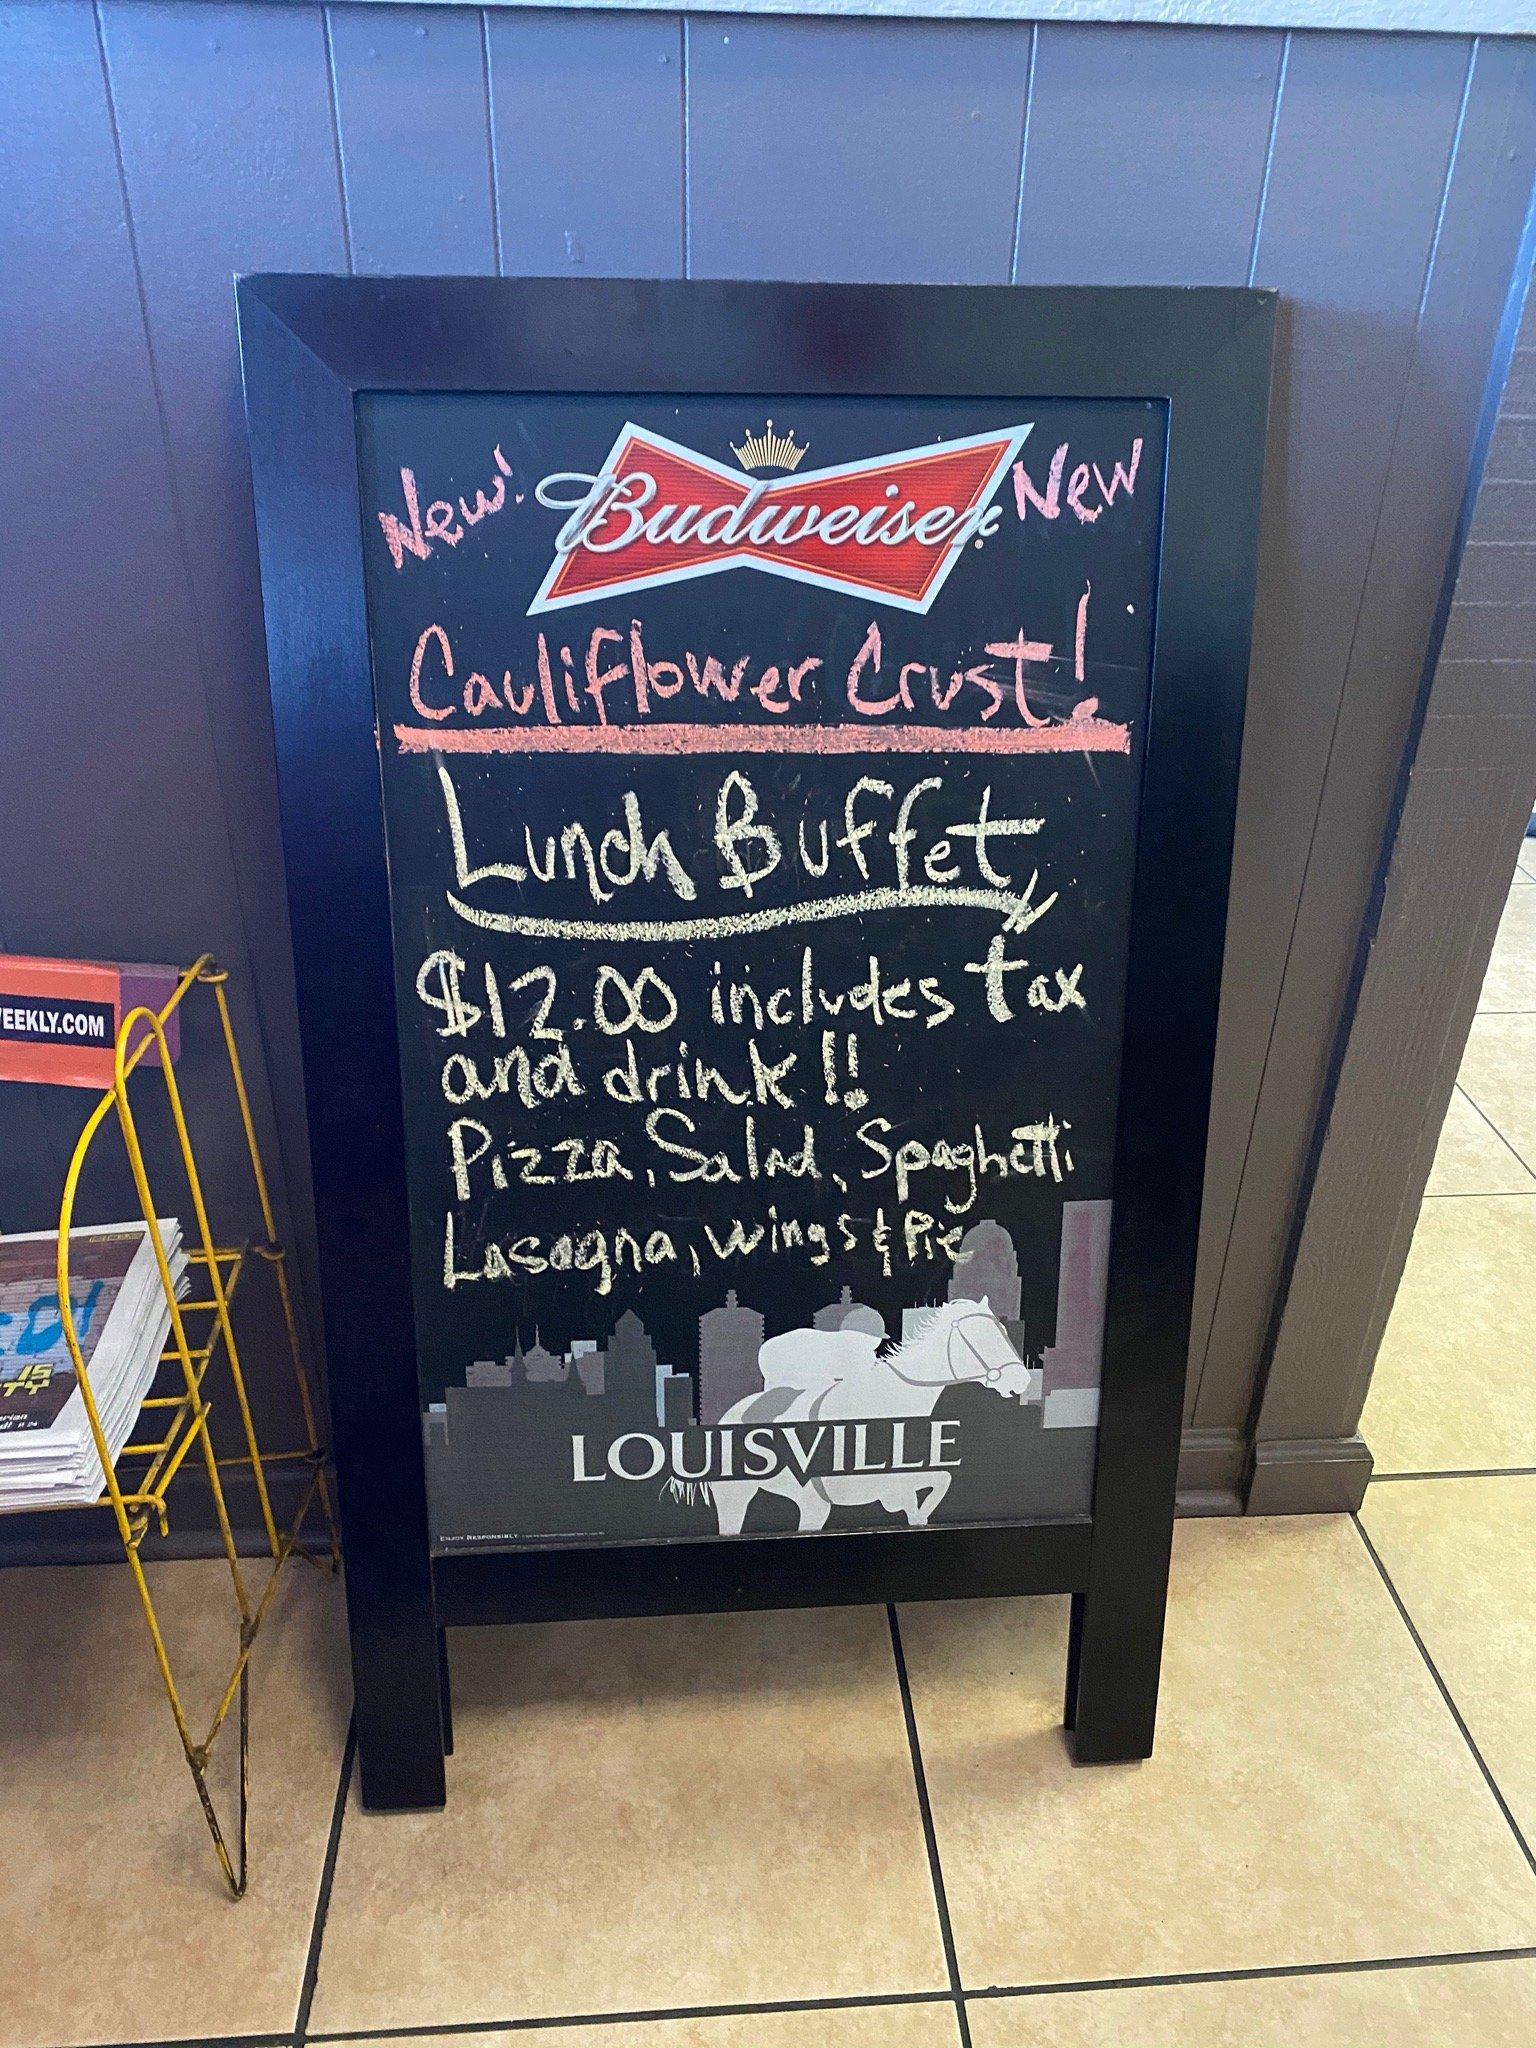 New! Budweiser New
Cauliflower Crust!
Lunch Buffet
$12.00 includes tax
and drink!!
Pizza, Salad, Spaghetti
Lasagna, wings & Pie
LOUISVILLE
ENJOY RESPONSIBLY
EEKLY.COM
IS